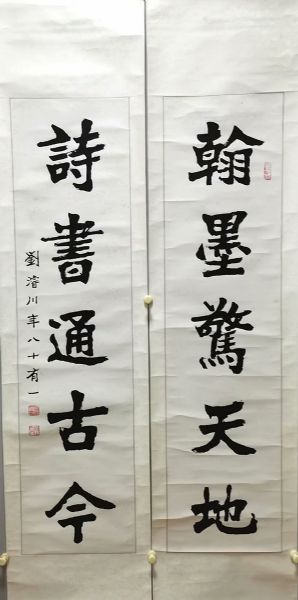 翰墨驚天地
詩書通古今
劉濬川年八十有一